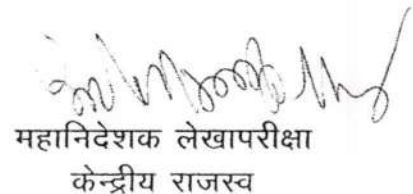 महानिदेशक लेखापरीक्षा
केन्द्रीय राजस्व